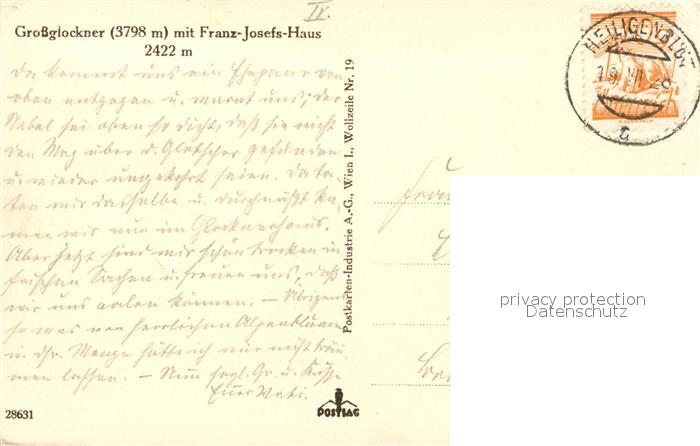 IV.
Großglockner (3798 m) mit Franz-Josefs-Haus
2422 m
Da kommt uns ein Ehepaar von
oben entgegen u. warnt uns; der
Nebel sei oben so dicht, daß sie nicht
den Weg über d. Gletscher gefunden
u. wieder umgekehrt seien. Da ta-
ten wir dasselbe u. durchnäßt ka-
men wir nun im Glocknerhaus.
Aber jetzt sind wir schön trocken in
frischen Sachen u. freuen uns, daß
wir uns aalen können. — Übrigens
so was von herrlichen Alpenblumen
in dsr. Menge hätte ich mir nicht träu-
men lassen. — Nun herzl. Gr. u. Küsse
Euer Vati.
28631
Postkarten-Industrie A.-G., Wien I., Wollzeile Nr. 19
POSTIAG
HEILIGENBLUT
19. VII 28
a
Frau
privacy protection
Datenschutz